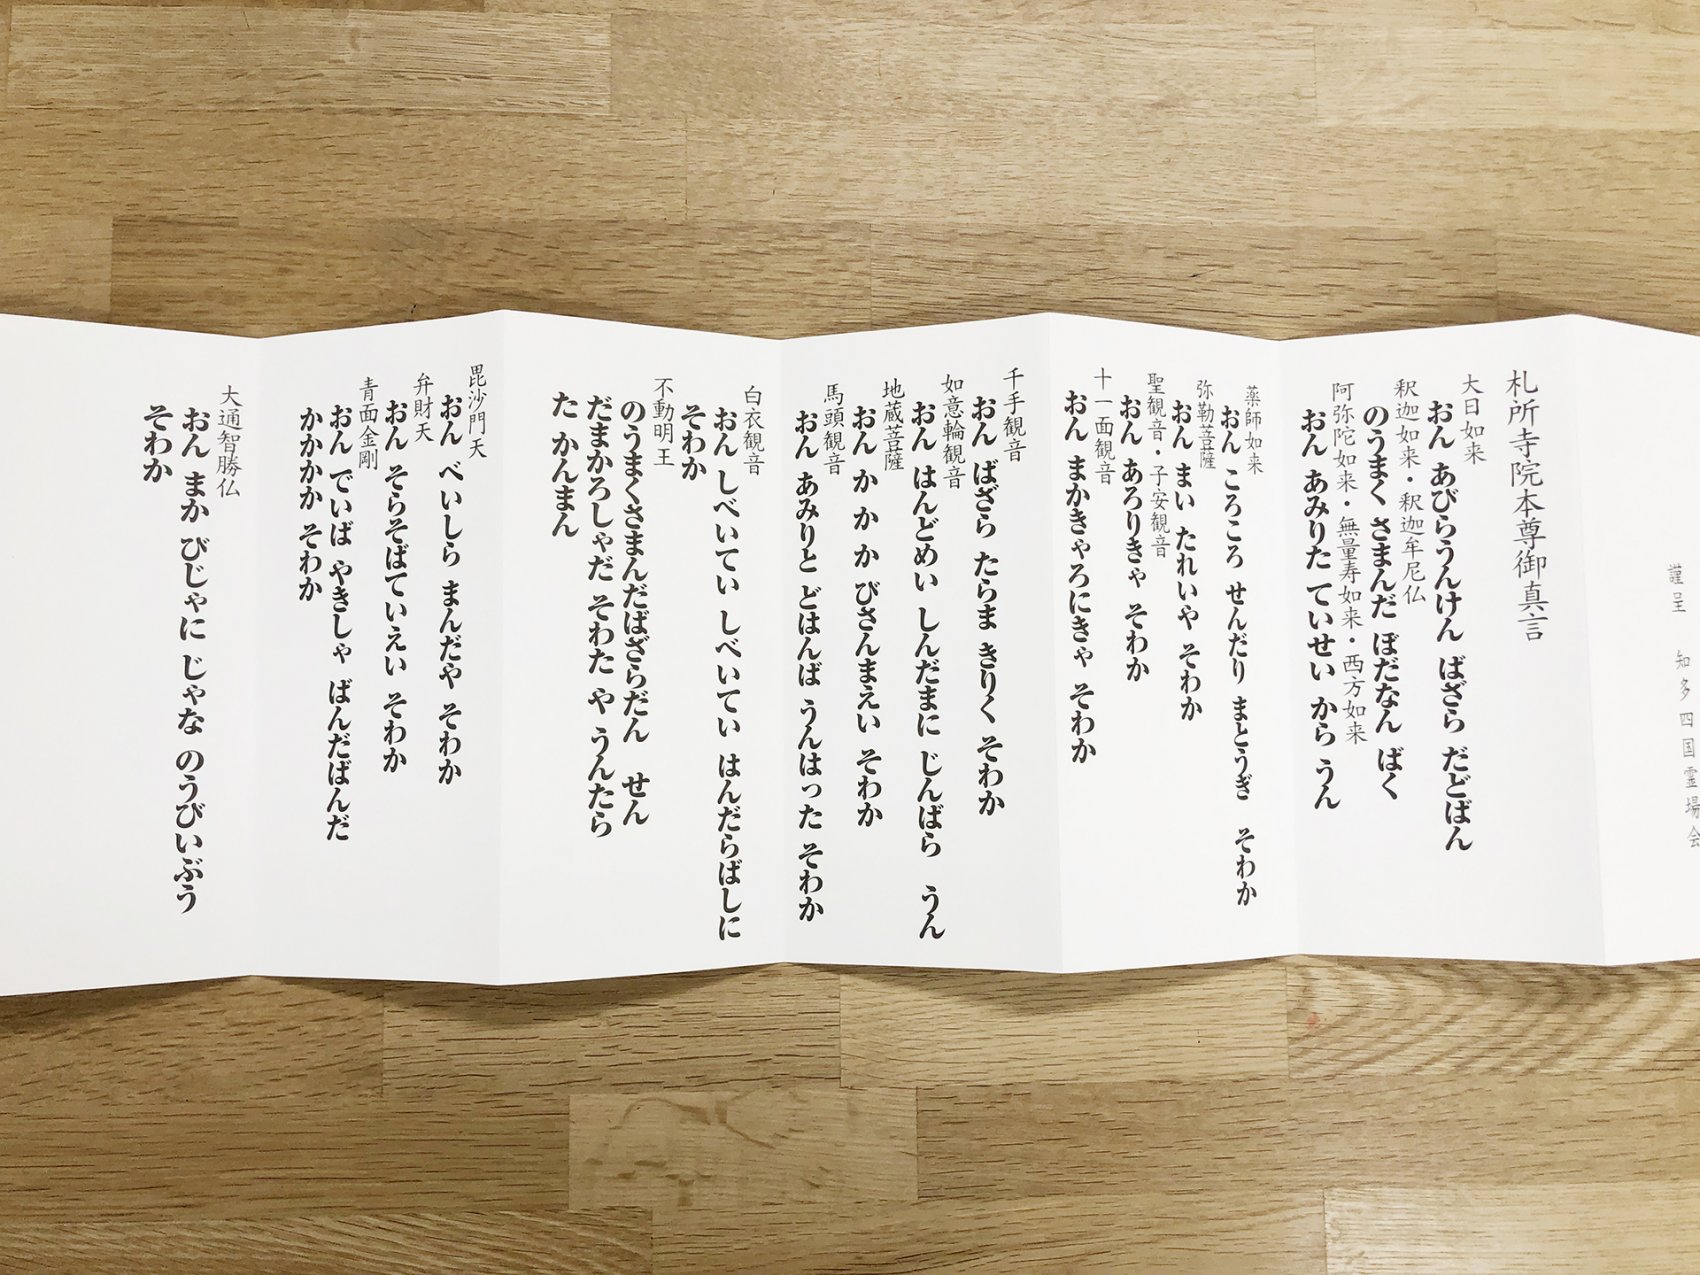 謹呈　知多四国霊場会
札所寺院本尊御真言
大日如来
おん あびらうんけん ばざら だどばん
釈迦如来・釈迦牟尼仏
のうまく さまんだ ぼだなん ばく
阿弥陀如来・無量寿如来・西方如来
おん あみりた ていせい から うん
薬師如来
おん ころころ せんだり まとうぎ そわか
弥勒菩薩
おん まい たれいや そわか
聖観音・子安観音
おん あろりきゃ そわか
十一面観音
おん まかきゃろにきゃ そわか
千手観音
おん ばざら たらま きりく そわか
如意輪観音
おん はんどめい しんだまに じんばら うん
地蔵菩薩
おん か か か びさんまえい そわか
馬頭観音
おん あみりと どはんば うんはった そわか
白衣観音
おん しべいてい しべいてい はんだらばしに
そわか
不動明王
のうまくさまんだばざらだん せん
だまかろしゃだ そわた や うんたら
た かんまん
毘沙門天
おん べいしら まんだや そわか
弁財天
おん そらそばていえい そわか
青面金剛
おん でいば やきしゃ ばんだばんだ
かかかか そわか
大通智勝仏
おん まか びじゃに じゃな のうびいぶう
そわか